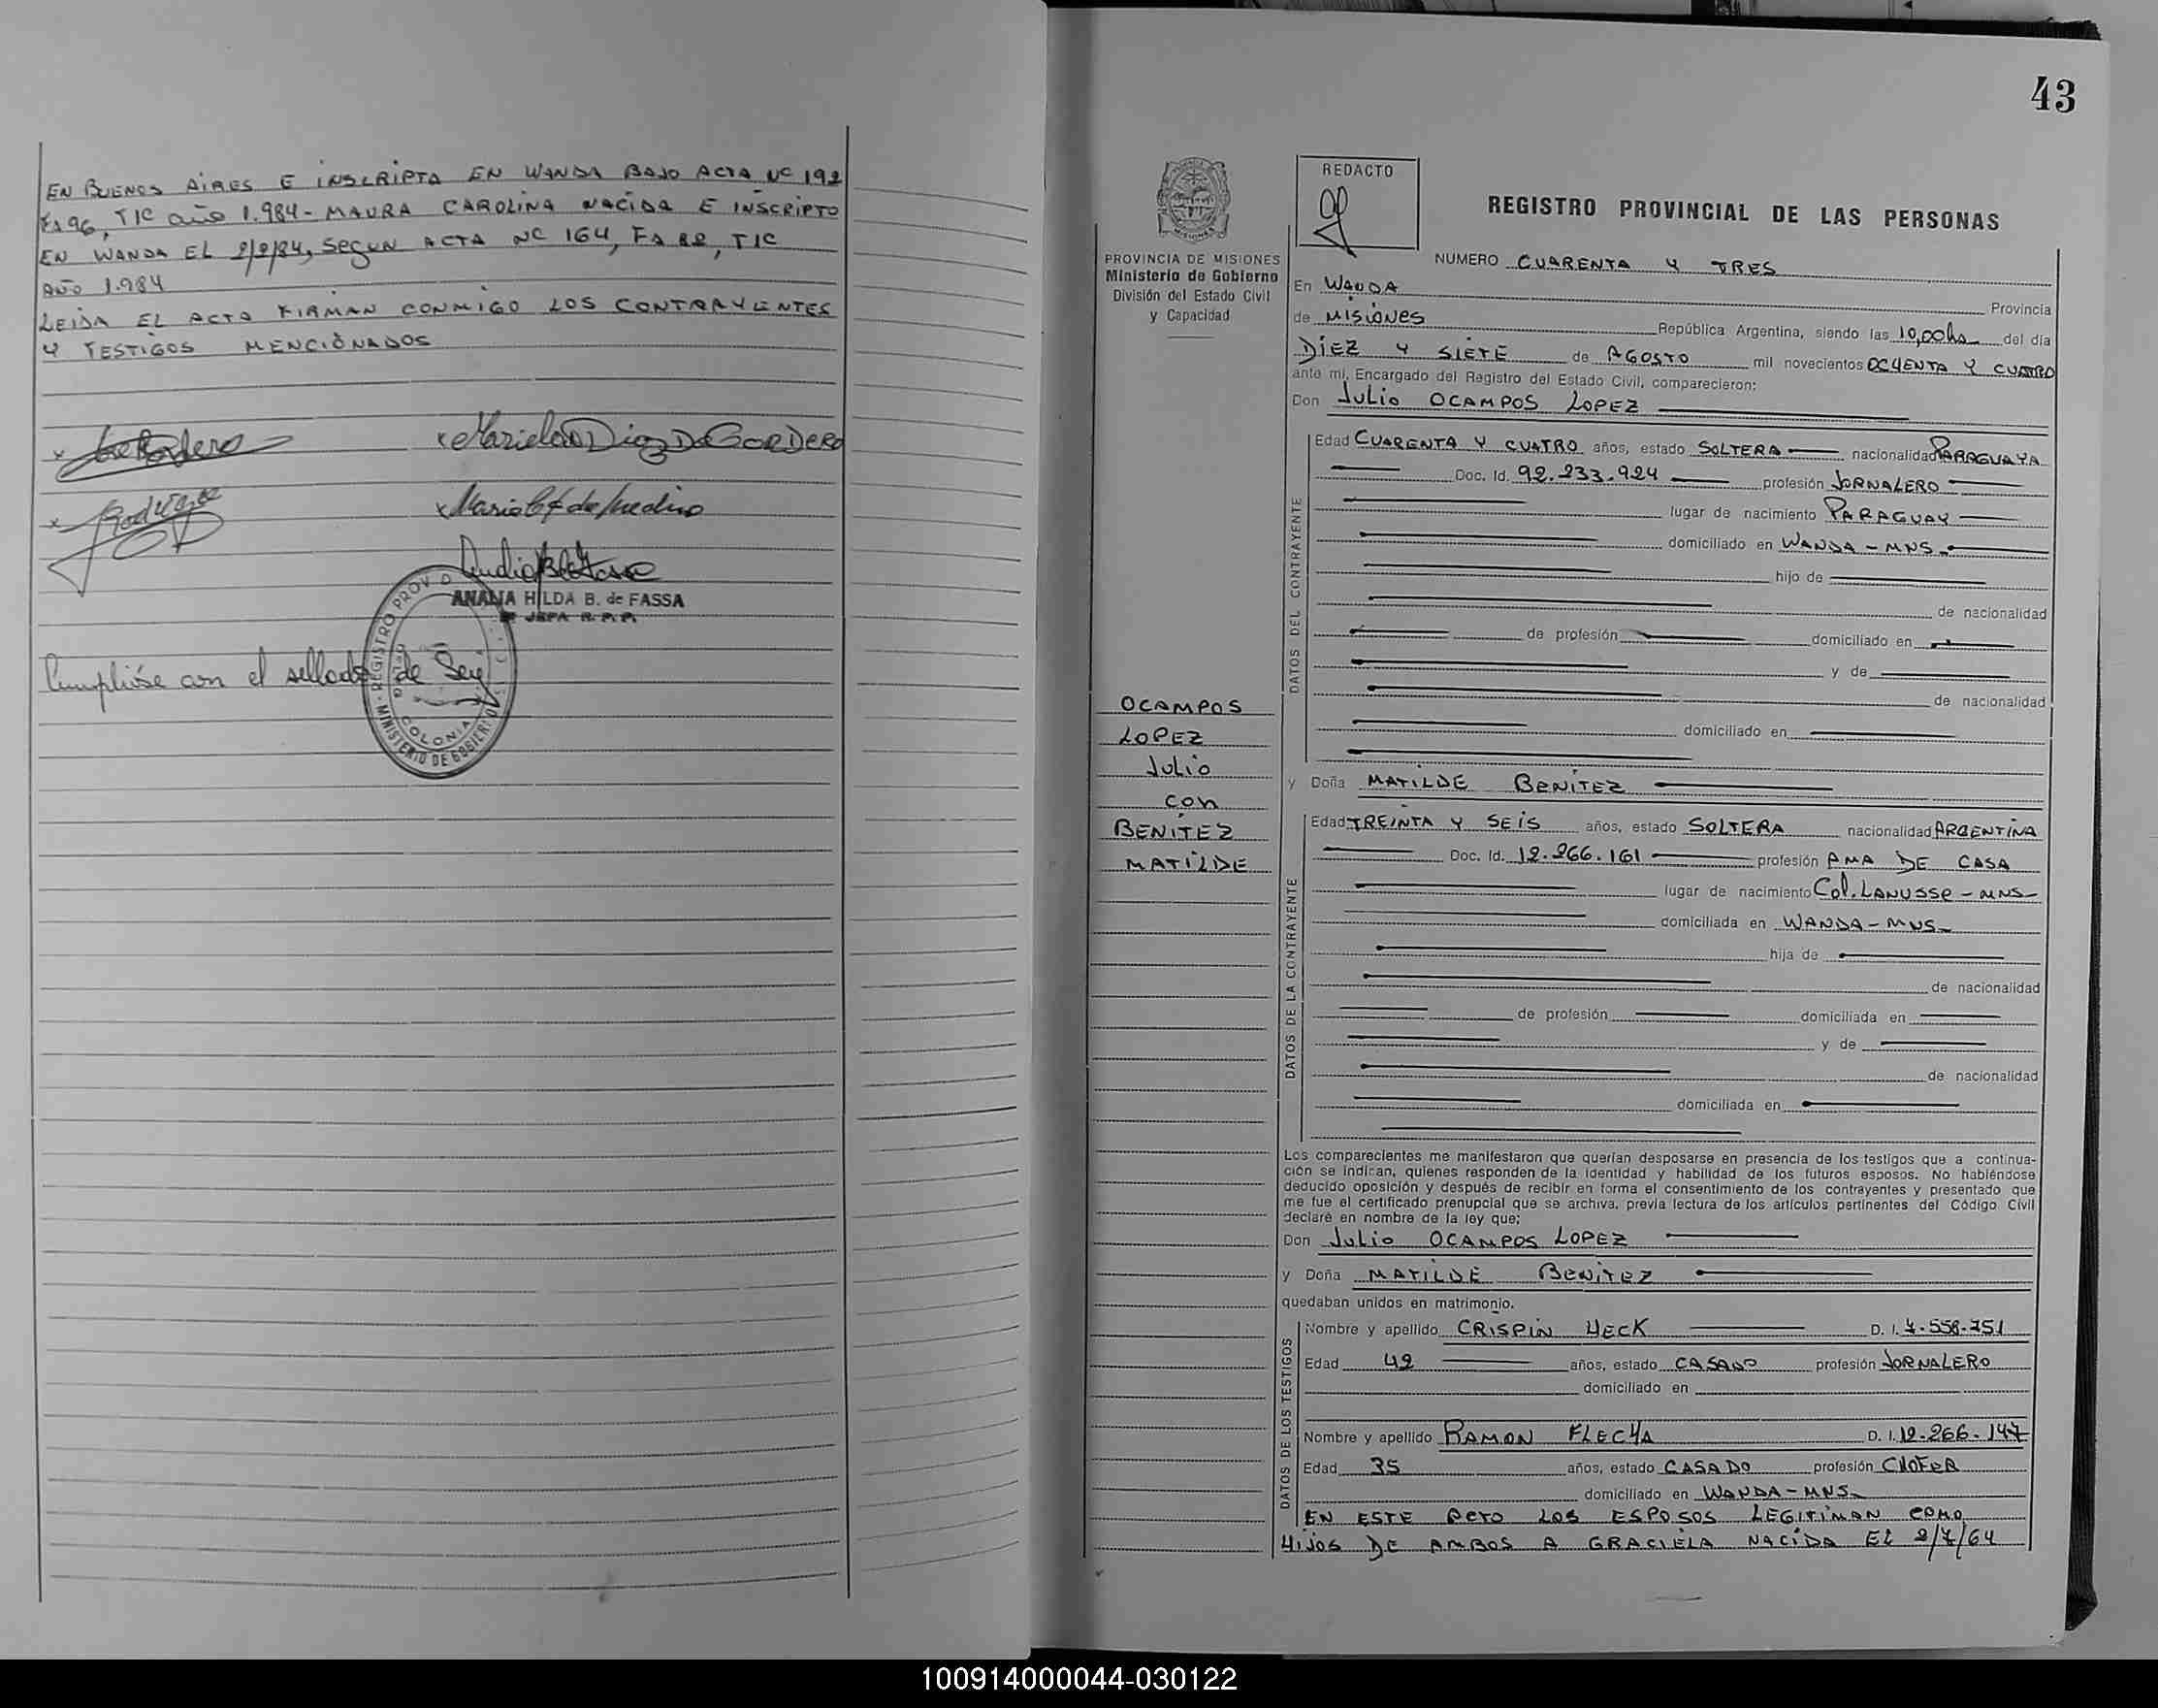 EN BUENOS AIRES E INSCRIPTA EN WANDA BAJO ACTA Nº 192
Fº 96, TIC año 1.984 - MAURA CAROLINA NACIDA E INSCRIPTO
EN WANDA EL 2/2/84, SEGUN ACTA Nº 164, Fº 82, TIC
AÑO 1.984
LEIDA EL ACTA FIRMAN CONMIGO LOS CONTRAYENTES
Y TESTIGOS MENCIONADOS
ANALIA HILDA B. de FASSA
JEFA R.P.P.
Cumplióse con el sellado de Ley
REGISTRO PROV D
COLONIA
MINISTERIO DE GOBIERNO
43
PROVINCIA DE MISIONES
Ministerio de Gobierno
División del Estado Civil
y Capacidad
OCAMPOS
LOPEZ
Julio
con
BENITEZ
MATILDE
REDACTO
REGISTRO PROVINCIAL DE LAS PERSONAS
NUMERO CUARENTA Y TRES
En WANDA Provincia
de MISIONES República Argentina, siendo las 10,00hs del día
DIEZ Y SIETE de AGOSTO mil novecientos OCHENTA Y CUATRO
ante mí, Encargado del Registro del Estado Civil, comparecieron:
Don Julio OCAMPOS LOPEZ
DATOS DEL CONTRAYENTE
Edad CUARENTA Y CUATRO años, estado SOLTERA nacionalidad PARAGUAYA
Doc. Id. 92.233.924 profesión JORNALERO
lugar de nacimiento PARAGUAY
domiciliado en WANDA - MNS.
hijo de
de nacionalidad
de profesión domiciliado en
y de
de nacionalidad
domiciliado en
y Doña MATILDE BENITEZ
DATOS DE LA CONTRAYENTE
Edad TREINTA Y SEIS años, estado SOLTERA nacionalidad ARGENTINA
Doc. Id. 12.266.161 profesión AMA DE CASA
lugar de nacimiento Col. LANUSSE - MNS-
domiciliada en WANDA - MNS-
hija de
de nacionalidad
de profesión domiciliada en
y de
de nacionalidad
domiciliada en
Los comparecientes me manifestaron que querían desposarse en presencia de los testigos que a continua-
ción se indican, quienes responden de la identidad y habilidad de los futuros esposos. No habiéndose
deducido oposición y después de recibir en forma el consentimiento de los contrayentes y presentado que
me fue el certificado prenupcial que se archiva, previa lectura de los artículos pertinentes del Código Civil
declaré en nombre de la ley que;
Don Julio OCAMPOS LOPEZ
y Doña MATILDE BENITEZ
quedaban unidos en matrimonio.
DATOS DE LOS TESTIGOS
Nombre y apellido CRISPIN HECK D. I. 7.558.751
Edad 42 años, estado CASADO profesión JORNALERO
domiciliado en
Nombre y apellido RAMON FLECHA D. I. 12.266.147
Edad 35 años, estado CASADO profesión CHOFER
domiciliado en WANDA - MNS-
EN ESTE ACTO LOS ESPOSOS LEGITIMAN COMO
HIJOS DE AMBOS A GRACIELA NACIDA EL 2/7/64
100914000044-030122